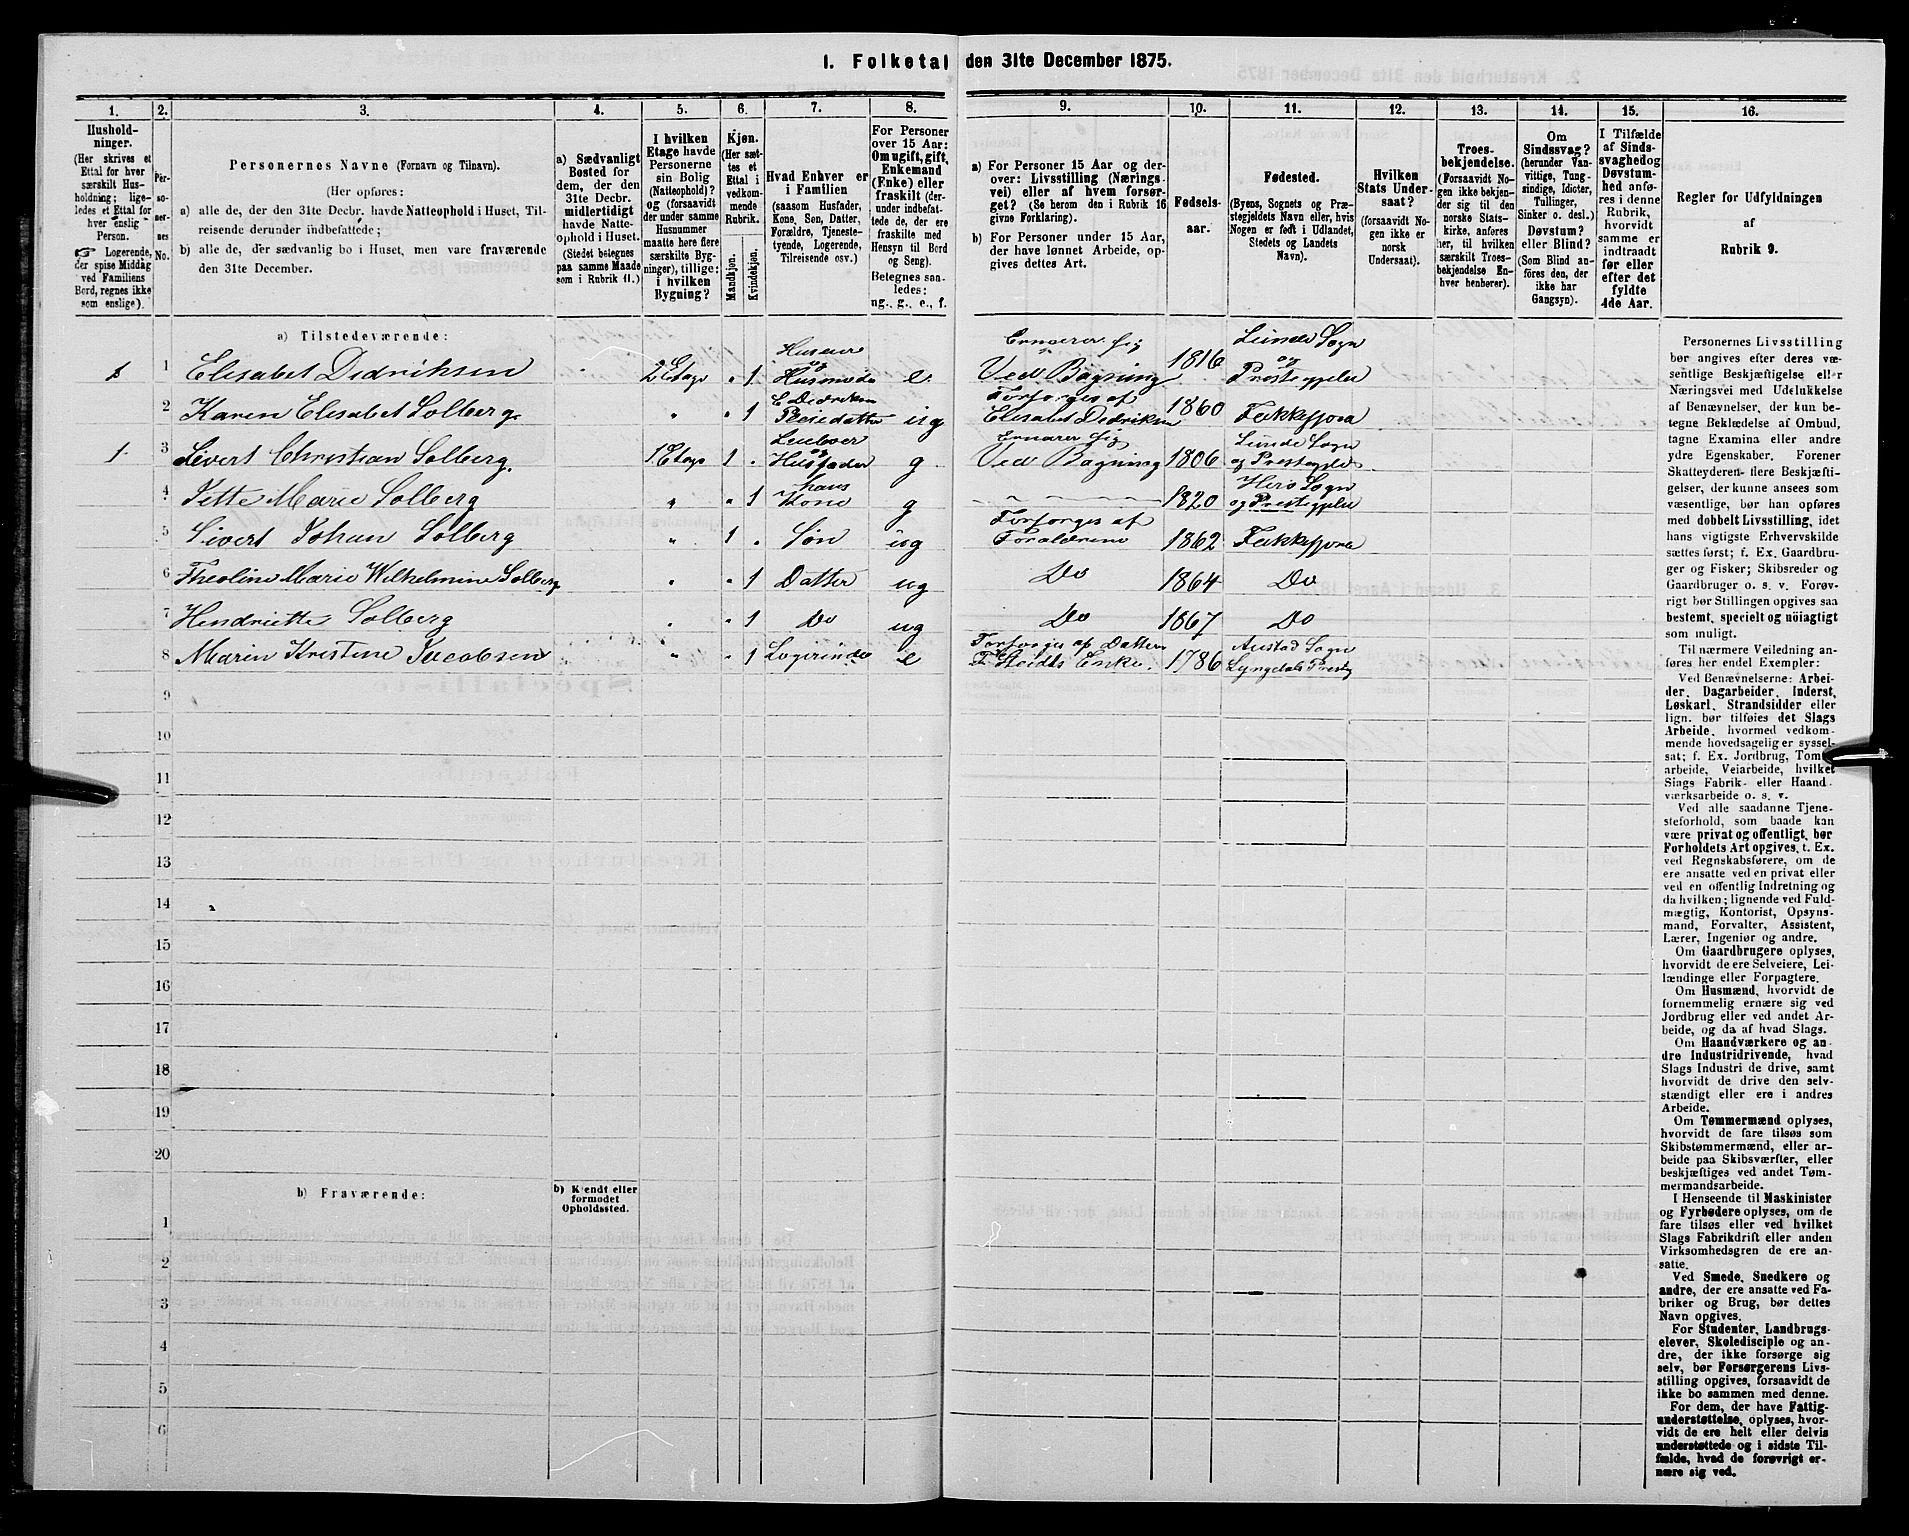 1. Folketal den 31te December 1875.
1. 2. 3. 4. 5. 6. 7. 8. 9. 10. 11. 12. 13. 14. 15. 16.
Hushold-
ninger.
(Her skrives et
Ettal for hver
særskilt Hus-
holdning; lige-
ledes et Ettal for
hver enslig
Person.
☞ Logerende,
der spise Middag
ved Familiens
Bord, regnes ikke
som enslige).
Per-
so-
ner-
nes
No.
Personernes Navne (Fornavn og Tilnavn).
(Her opføres:
a) alle de, der den 31te Decbr. havde Natteophold i Huset, Til-
reisende derunder indbefattede;
b) alle de, der sædvanlig bo i Huset, men vare fraværende
den 31te December.
a) Sædvanligt
Bosted for
dem, der den
31te Decbr.
midlertidigt
havde Natte-
ophold i Huset.
(Stedet betegnes
paa samme Maade
som i Rubrik 11.)
I hvilken
Etage havde
Personerne
sin Bolig
(Natteophold)?
og (forsaavidt
der under samme
Husnummer
maatte høre flere
særskilte Byg-
ninger), tillige:
i hvilken
Bygning?
Kjøn.
(Her sæt-
tes et
Ettal i
vedkom-
mende
Rubrik.
Mandkjøn.
Kvindekjøn.
Hvad Enhver er
i Familien
(saasom Husfader,
Kone, Søn, Datter,
Forældre, Tjeneste-
tyende, Logerende,
Tilreisende osv.)
For Personer
over 15 Aar:
Om ugift, gift,
Enkemand
(Enke) eller
fraskilt (der-
under indbefat-
tede de, der ere
fraskilte med
Hensyn til Bord
og Seng).
Betegnes saa-
ledes:
ug., g., e., f.
a) For Personer 15 Aar og der-
over: Livsstilling (Nærings-
vei) eller af hvem forsør-
get? (Se herom den i Rubrik 16
givne Forklaring).
b) For Personer under 15 Aar,
der have lønnet Arbeide, op-
gives dettes Art.
Fødsels-
aar.
Fødested.
(Byens, Sognets og Præ-
stegjeldets Navn eller, hvis
Nogen er født i Udlandet,
Stedets og Landets
Navn).
Hvilken
Stats Under-
saat?
(forsaavidt No-
gen ikke er
norsk
Undersaat).
Troes-
bekjendelse.
(Forsaavidt No-
gen ikke bekjen-
der sig til den
norske Stats-
kirke, anføres
her, til hvilken
særskilt Troes-
bekjendelse En-
hver henhører).
Om
Sindssvag?
(herunder Van-
vittige, Tung-
sindige, Idioter,
Tullinger,
Sinker o. desl.)
Døvstum?
eller Blind?
(Som Blind an-
føres den, der
ikke har
Gangsyn).
I Tilfælde
af Sinds-
svaghed og
Døvstum-
hed anfø-
res i denne
Rubrik,
hvorvidt
samme er
indtraadt
før eller
efter det
fyldte
4de Aar.
Regler for Udfyldningen
af
Rubrik 9.
a) Tilstedeværende:
1 1 Elisabet Didriksen 2 Etage 1 Huseier og Husmoder e. Ernærer sig Ved Bagning 1816 Lunde Sogn og Prestegjeld
2 Karen Elisabet Solberg " 1 E Didriksen Pleiedatter ug Forsørges af Elisabet Didriksen 1860 Flekkefjord
1 3 Sivert Christian Solberg. 1 Etage 1 Leieboer og Husfader g Ernærer sig Ved Bagning 1806 Lunde Sogn og Prestegjeld
4 Jette Marie Solberg " 1 hans Kone g 1820 Hero Sogn og Prestegjeld
5 Sivert Johan Solberg " 1 Søn ug Forsørges af Forældrene 1862 Flekkefjord
6 Theoline Marie Wilhelmine Solberg " 1 Datter ug Do 1864 Do
7 Hendriette Solberg " 1 Do ug Do 1867 Do
8 Maren Kristine Jacobsen " 1 Logerende e Forsørges af Datteren Enke. 1786 Austad Sogn Lyngdals Prestg
9
10
11
12
13
14
15
16
17
18
19
20
b) Fraværende:
b) Kjendt eller
formodet
Opholdssted.
1
2
3
4
5
6
Personernes Livsstilling
bør angives efter deres væ-
sentlige Beskjæftigelse eller
Næringsvei med Udelukkelse
af Benævnelser, der kun be-
tegne Beklædelse af Ombud,
tagne Examina eller andre
ydre Egenskaber. Forener
Skatteyderen flere Beskjæfti-
gelser, der kunne ansees som
væsentlige, bør han opføres
med dobbelt Livsstilling, idet
hans vigtigste Erhvervskilde
sættes først; f. Ex. Gaardbru-
ger og Fisker; Skibsreder og
Gaardbruger o. s. v. Forøv-
rigt bør Stillingen opgives saa
bestemt, specielt og nöiagtigt
som muligt.
Til nærmere Veiledning an-
føres her endel Exempler:
Ved Benævnelserne: Arbei-
der, Dagarbeider, Inderst,
Løskarl, Strandsidder eller
lign. bør tilføies det Slags
Arbeide, hvormed vedkom-
mende hovedsagelig er syssel-
sat; f. Ex. Jordbrug, Tomt-
arbeide, Veiarbeide, hvilket
Slags Fabrik- eller Haand-
værksarbeide o. s. v.
Ved alle saadanne Tjene-
steforhold, som baade kan
være privat og offentligt, bør
Forholdets Art opgives, t. Ex.
ved Regnskabsførere, om de
ere ansatte ved en privat eller
ved en offentlig Indretning og
da hvilken; lignende ved Fuld-
mægtig, Kontorist, Opsyns-
mand, Forvalter, Assistent,
Lærer, Ingeniør og andre.
Om Gaardbrugere oplyses,
hvorvidt de ere Selveiere, Lei-
lændinge eller Forpagtere.
Om Husmænd, hvorvidt de
fornemmelig ernære sig ved
Jordbrug eller ved andet Ar-
beide, og da af hvad Slags.
Om Haandværkere og an-
dre Industridrivende, hvad
Slags Industri de drive, samt
hvorvidt de drive den selv-
stændigt eller ere i andres
Arbeide.
Om Tømmermænd oplyses,
hvorvidt de fare tilsøs som
Skibstømmermænd, eller ar-
beide paa Skibsværfter, eller
beskjæftiges ved andet Tøm-
mermandsarbeide.
I Henseende til Maskinister
og Fyrbødere oplyses, om de
fare tilsøs eller ved hvilket
Slags Fabrikdrift eller anden
Virksomhedsgren de ere an-
satte.
Ved Smede, Snedkere og
andre, der ere ansatte ved Fa-
briker og Brug, bør dettes
Navn opgives.
For Studenter, Landbrugs-
elever, Skoledisciple og an-
dre, der ikke forsørge sig
selv, bør Forsørgerens Livs-
stilling opgives, forsaavidt de
ikke bo sammen med denne.
For dem, der have Fattig-
understøttelse, oplyses, hvor-
vidt de ere helt eller delvis
understøttede og i sidste Til-
fælde, hvad de forøvrigt er-
nære sig ved.